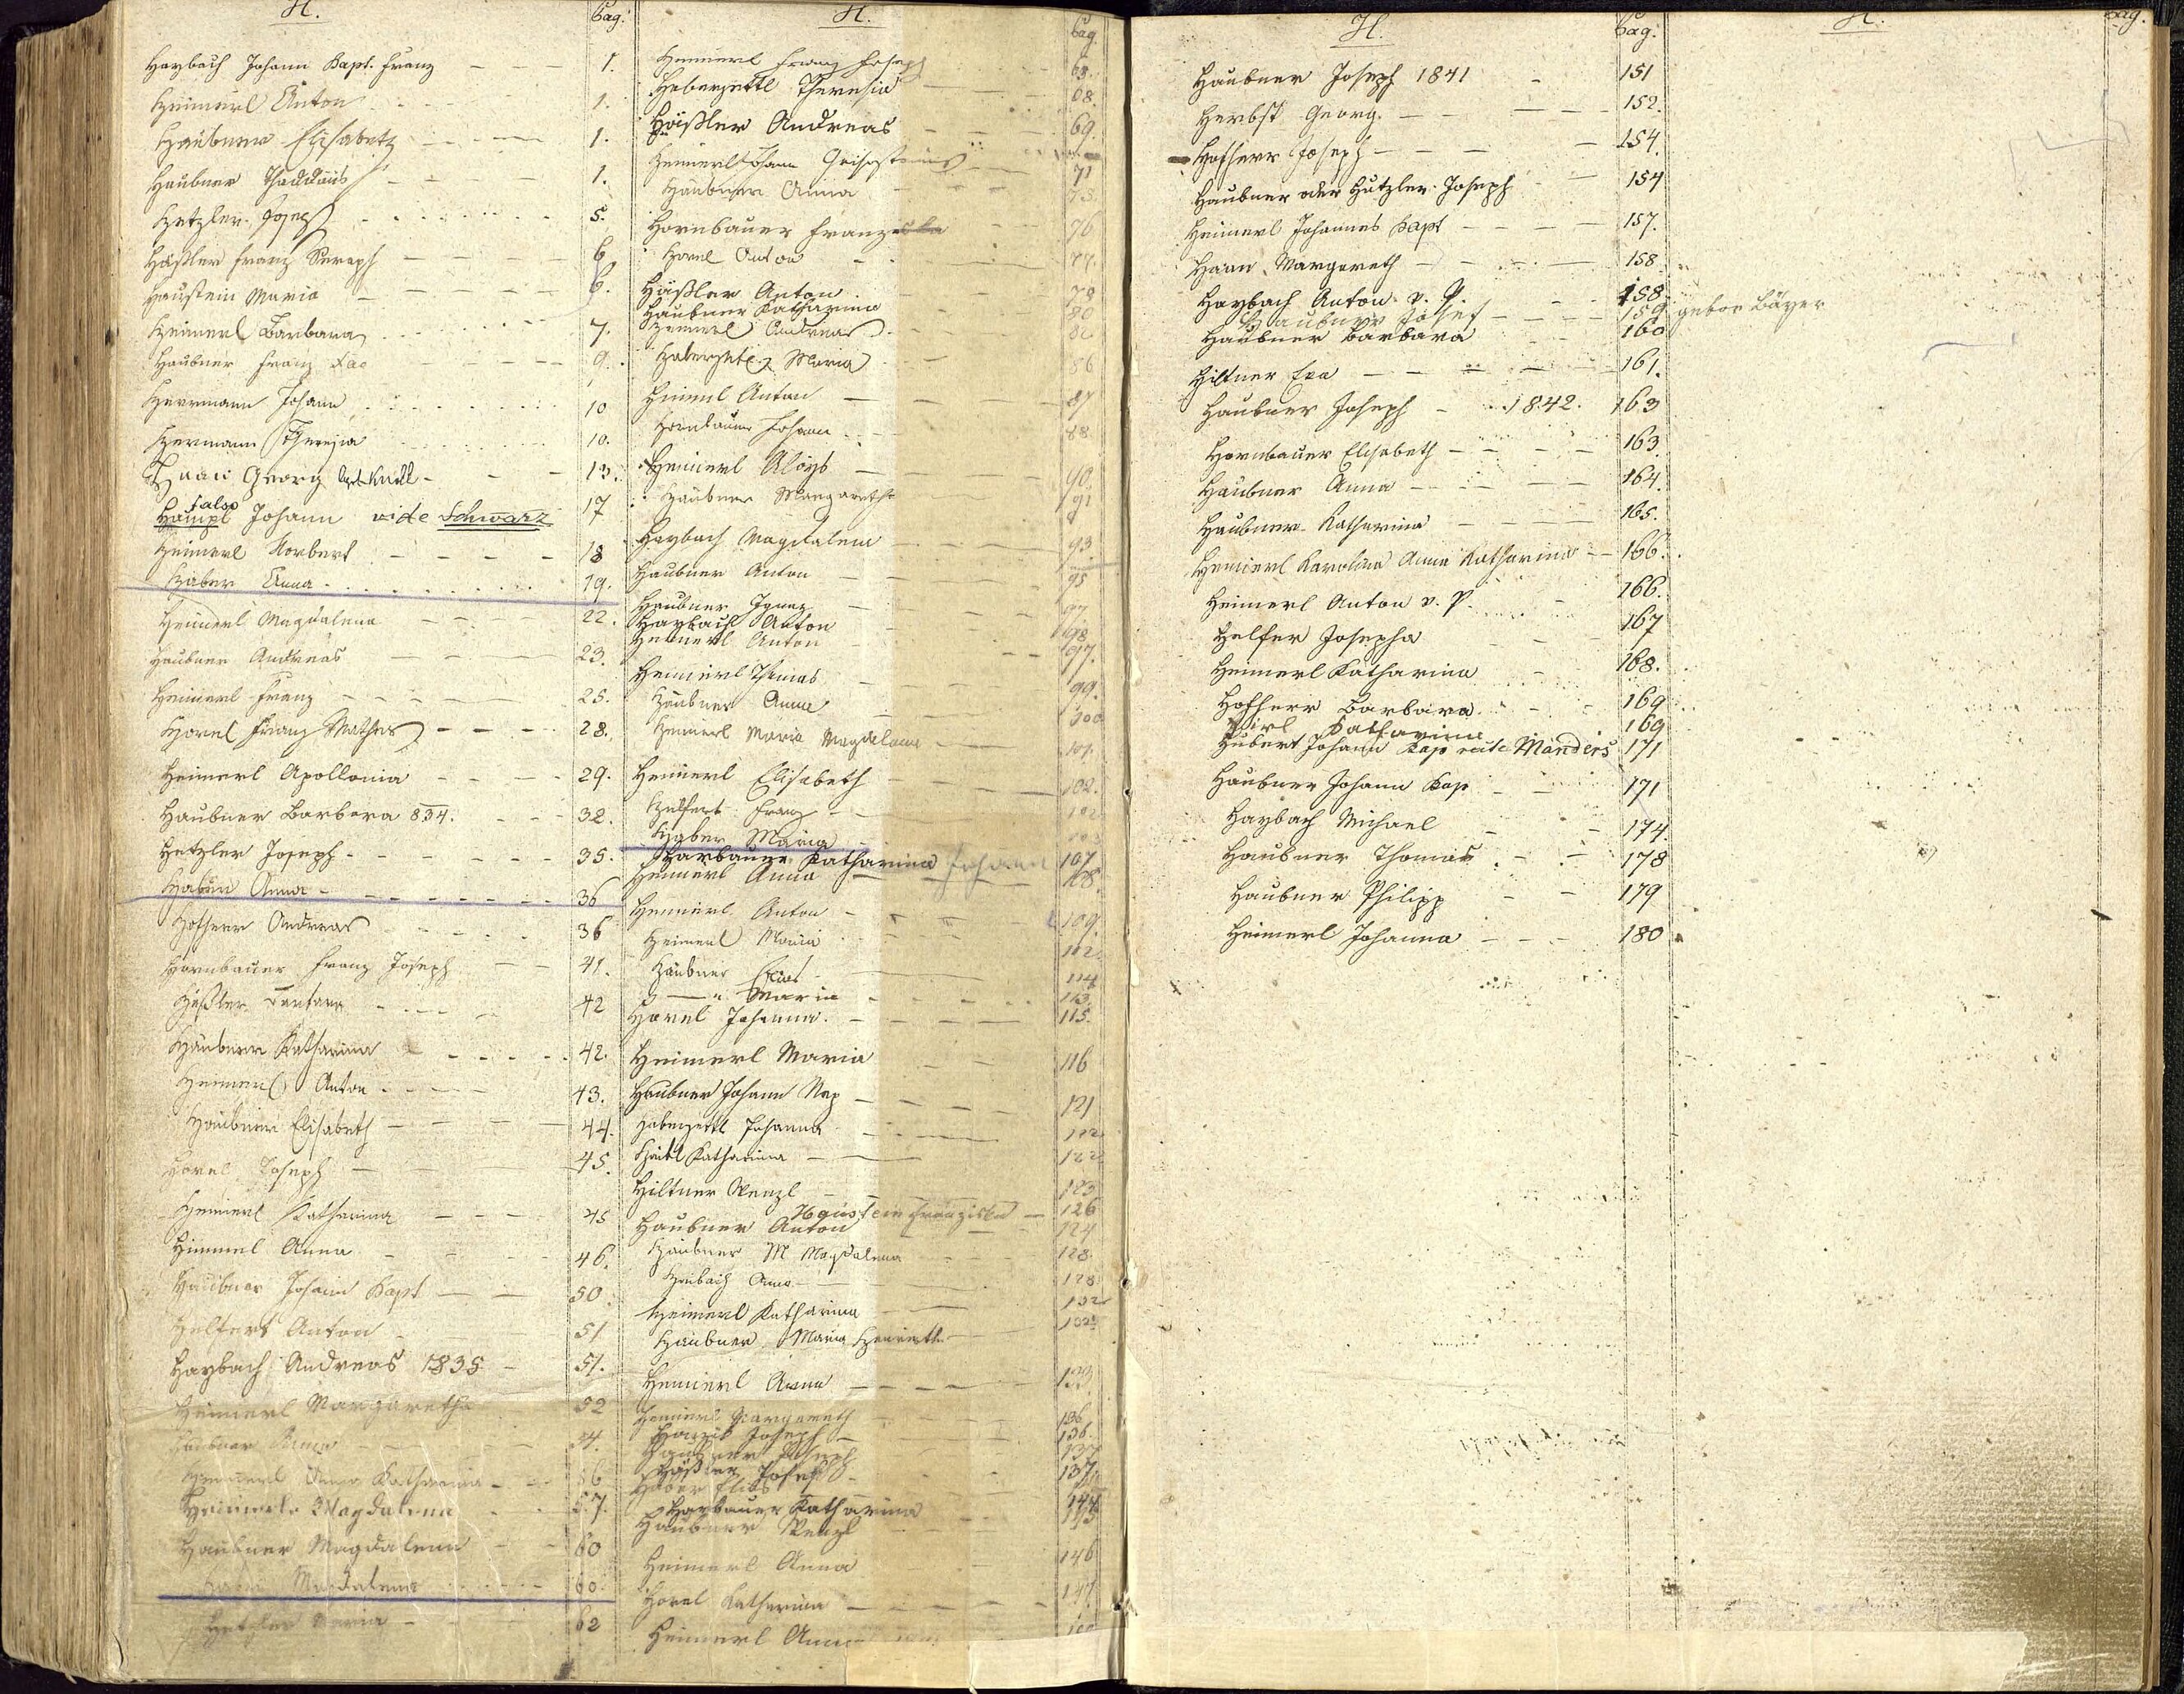 H.
Pag:
Haybach Johann Bapt. Franz 1.
Heimerl Anton 1.
Haubner Elisabeth 1.
Haubner Thaddäus 1.
Hetzler Joseph 5.
Häßler Franz Seraph 6
Haustein Maria 6.
Heimerl Barbara 7.
Haubner Franz Xav 9.
Herrmann Johann 10
Hermann Theresia 10.
Haan Georg 13.
falso
Hampl Johann vide Schwarz 17
Heimerl Norbert 18
Haber Anna 19.
Heimerl Magdalena 22.
Haubner Andreas 23.
Heimerl Franz 25.
Horel Franz Mathes 28.
Heimerl Apollonia 29.
Haubner Barbara 834. 32.
Hetzler Joseph 35.
Haber Anna 36
Hofherr Andreas 36
Hornbauer Franz Joseph 41.
Häßler Barbara 42
Haubner Katharina 42.
Heimerl Anton 43.
Haubner Elisabeth 44.
Horel Joseph 45.
Heimerl Katharina 45
Himmel Anna 46.
Haubner Johann Bapt 50
Helfert Anton 51
Haybach Andreas 1835 51.
Heimerl Margaretha 52
Haubner Anna 54.
Heimerl Anna Katharina 56
Heimerl Magdalena 57.
Haubner Magdalena 60
Magdalena 60.
Hetzler Maria 62
H.
Pag.
Heimerl Franz Joseph 68.
Haberzettl Theresia 68.
Häßler Andreas 69.
Heimerl Johann 71
Haubner Anna 73.
Hornbauer Franz 76
Horel Anton 77.
Häßler Anton 78
Haubner Katharina 80
Heimerl Andreas 82
Haberzettl Maria 86
Himml Anton 87
Hornbauer Johann 88
Heimerl Aloys 90.
Haubner Margareth 91
Haybach Magdalena 93.
Haubner Anton 95
Haubner Ignaz 97
Haybach Anton 98
Heimerl Anton 97.
Heimerl Thomas 99.
Haubner Anna 100
Heimerl Maria Magdalena 101.
Heimerl Elisabeth 102.
Helfert Franz 102
Haber Maria 103
Harbauer Katharina Johann 107
Heimerl Anna 108.
Heimerl Anton 109.
Heimerl Maria 112.
Haubner Elias 114
" Maria 113.
Horel Johanna 115.
Heimerl Maria 116
Haubner Johann Nep 121
Haberzettl Johanna 122
Katharina 122
Hiltner Wenzl 123
Haustein Franziska 126
Haubner Anton 124
Haubner M Magdalena 128.
Haibach Anna 128
Heimerl Katharina 132
Haubner Maria 132
Heimerl Anna 133.
Heimerl Margareth 136
Joseph 136.
Haubner Joseph 137
Häßler Josef 137
Haber Elias
Harbauer Katharina 144
Haubner Wenzl 145
Heimerl Anna 146
Horel Katharina 147.
Heimerl Anna
H.
Pag:
Haubner Joseph 1841 151
Herbst Georg. 152.
Hofherr Joseph 154.
Haubner oder Hutzler Joseph 154
Heimerl Johannes Bapt 157.
Haan Margareth 158
Haybach Anton v. P. 158
Haubner Josef 159 gebor Bäyer
Haubner Barbara 160
Hiltner Eva 161.
Haubner Joseph 1842. 163
Hornbauer Elisabeth 163
Haubner Anna 164.
Haubner Katharina 165.
Heimerl Karolina Anna Katharina 166.
Heimerl Anton v. P. 166.
Helfer Josepha 167
Heimerl Katharina 168.
Hofherr Barbara 169
Katharina 169
Hubert Johann Bap recte Manders 171
Haubner Johann Bap 171
Haybach Michael 174.
Haubner Thomas 178
Haubner Philipp 179
Heimerl Johanna 180
H.
Pag.